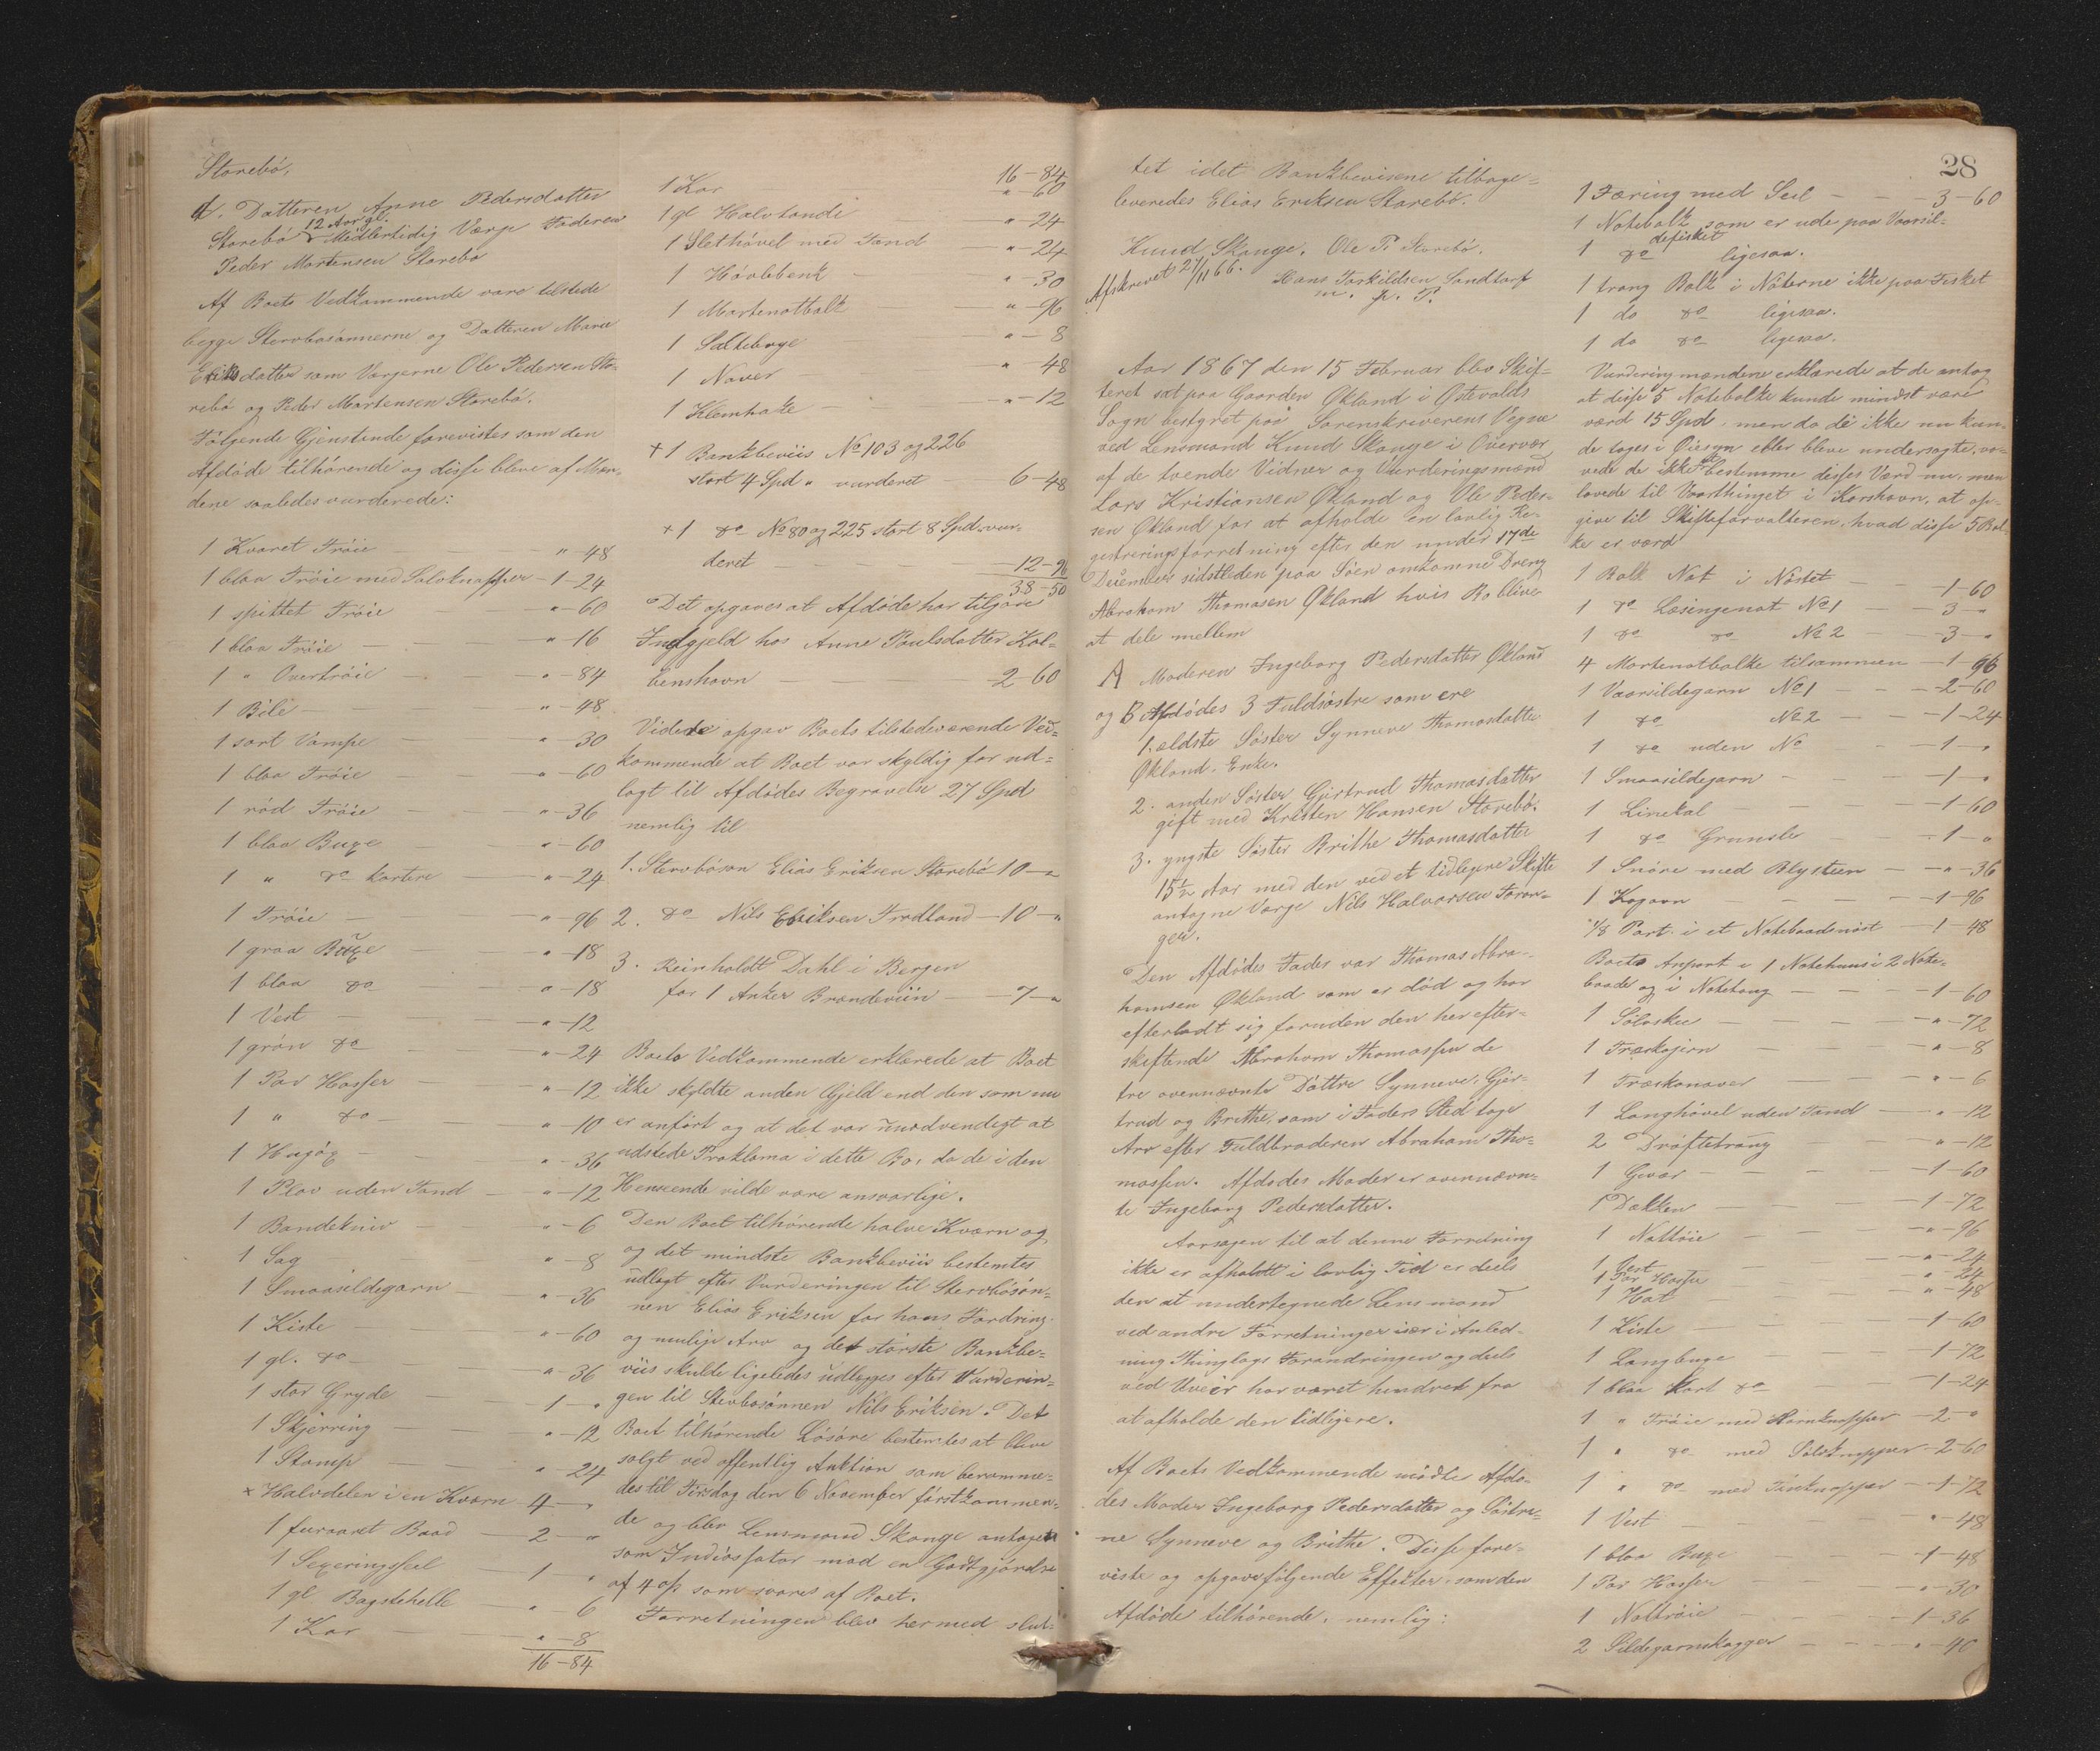 Storebö,
4. Datteren Anne Pedersdatter
Storebö 12 Aar gl. Midlertidig Værge Faderen
Peder Mortensen Storebö
Af Boets Vedkommende vare tilstede
begge Stervbosönnerne og Datteren Marie
Eriksdatter som Værgerne Ole Pedersen Sto-
rebö og Peder Mortensen Storebö.
Fölgende Gjenstande forevistes som den
Afdöde tilhörende og disse bleve af Mæn-
dene saaledes vurderede:
1 Kvoret Tröie " - 48
1 blaa Tröie med Solvknapper - 1 - 24
1 spittet Tröie " - 60
1 blaa Tröie " - 16
1 " Overtröie " - 84
1 Bile " - 48
1 sort Vampe " - 30
1 blaa Tröie " - 60
1 röd Tröie " - 36
1 blaa Buxe " - 60
1 " do kortere " - 24
1 Tröie " - 96
1 graa Buxe " - 18
1 blaa do " - 18
1 Vest " - 12
1 grön do " - 24
1 Par Hosser " - 12
1 " do " - 10
1 Hugöx " - 36
1 Plov uden Tand " - 12
1 Bandekniv " - 6
1 Sag " - 8
1 Smaasildegarn " - 36
1 Kiste " - 60
1 gl. do " - 36
1 stor Gryde 1 - "
1 Skjerring " - 12
1 Stamp " - 24
x Halvdelen i en Kværn 4 - "
1 furaaret Baad 2 - "
1 Sexeringsseil 1 - "
1 gl Bagstehelle " - 6
1 Kar " - 8
16 - 84
16 - 84
1 Kar " - 60
1 gl Halvtönde " - 24
1 Slethövel med Tand " - 24
1 Hövlebenk " - 30
1 Mortenotbalk " - 96
1 Saltebøge " - 8
1 Naver " - 48
1 Klemhake " - 12
+ 1 Bankbeviis No 103 og 226
stort 4 Spd " vurderet 6 - 48
+ 1 do No 80 og 225 stort 8 Spd vur-
deret 12 - 96
38 - 50
Det opgaves at Afdöde har tilgode
Indgjeld hos Anne Poulsdatter Kol-
benshavn 2 60
Videre opgav Boets tilstedeværende Ved-
kommende at Boet var skyldig for ud-
lagt til Afdödes Begravelse 27 Spd
nemlig til
1. Stervbösön Elias Eriksen Storebö 10 - "
2. do Nils Eriksen Trodland - 10 - "
3. Reinholdt Dahl i Bergen
for 1 Anker Brændeviin 7 - "
Boets Vedkommende erklærede at Boet
ikke skyldte anden Gjeld end den som nu
er anfört og at det var unödvendigt at
udstede Proklama i dette Bo, da de i den
Henseende vilde være ansvarlige.
Den Boet tilhörende halve Kværn og
og det mindste Bankbeviis bestemtes
udlagt efter Vurderingen til Stervbösön-
nen Elias Eriksen for hans Fordring
og mulige Arv og det störste Bankbe-
viis skulde ligeledes udlægges efter Vurderin-
gen til Stervbosönnen Nils Eriksen. Det
Boet tilhörende Lösöre bestemtes at blive
solgt ved offentlig Auktion som beramme-
des til Tirsdag den 6 November förstkommen-
de og blev Lensmand Skauge antaget
som Indkassator mod en Godtgjörelse
af 4 % som svares af Boet.
Forretningen blev hermed slut-
28
tet idet Bankbevisene tilbage-
leveredes Elias Eriksen Storebö.
Knud Skauge. Ole P. Storebö.
Hans Torkildsen Sandtorf
m. p. P.
Afskrevet 27/11 66.
Aar 1867 den 15 Februar blev Skif-
teret sat paa Gaarden Økland i Østevolds
Sogn bestyret paa Sorenskriverens Vegne
ved Lensmand Knud Skauge i Overvær
af de tvende Vidner og Vurderingsmænd
Lars Kristiansen Økland og Ole Peder-
sen Økland for at afholde en lovlig Re-
gistreringsforretning efter den under 17de
December sidstleden paa Söen omkomne Dreng
Abraham Thomasen Økland hvis Bo bliver
at dele mellem
A Moderen Ingeborg Pedersdatter Økland
og B Afdödes 3 Fuldsöstre som ere
1. ældste Söster Synneve Thomasdatter
Økland. Enke.
2. anden Söster Gjertrud Thomasdatter
gift med Kristen Hansen Storebö.
3. yngste Söster Brithe Thomasdatter
15 1/2 Aar med den ved et tidligere Skifte
antagne Værge Nils Halvorsen Toran-
ger.
Den Afdödes Fader var Thomas Abra-
hamsen Økland som er död og har
efterladt sig foruden den her efter-
skiftende Abraham Thomassen de
tre ovennævnte Döttre Synneve, Gjer-
trud og Brithe, som i Faders Sted tage
Arv efter Fuldbroderen Abraham Tho-
massen. Afdödes Moder er ovennævn-
te Ingeborg Pedersdatter.
Aarsagen til at denne Forretning
ikke er afholdt i lovlig Tid er deels
den at undertegnede Lensmand
ved andre Forretninger især i Anled-
ning Thinglags Forandringen og deels
ved Uveir har været hindret fra
at afholde den tidligere.
Af Boets Vedkommende mödte Afdö-
des Moder Ingeborg Pedersdatter og Söstre-
ne Synneve og Brithe. Disse fore-
viste og opgave fölgende Effekter som den
Afdöde tilhörende, nemlig:
1 Færing med Seil 3 - 60
1 Notebalk som er ude paa Vaarsil-
defisket
1 do ligesaa.
1 trang Balk i Nöterne ikke paa Fisket
1 do do ligesaa.
1 do do ligesaa.
Vurderingsmændene erklærede at de antog
at disse 5 Notebalke kunde mindst være
værd 15 Spd. men da de ikke nu kun-
de tages i Øiesyn eller bleve undersøgte, vo-
vede de ikke at bestemme disses Værd nu, men
lovede til Vaarthinget i Korshavn, at op-
give til Skifteforvalteren, hvad disse 5 Bal-
ke er værd
1 Balk Not i Nöstet 1 - 60
1 do Læsingenot No 1 3 - "
1 do do No 2 3 - "
4 Mortenotbalke tilsammen 1 96
1 Vaarsildegarn No 1 2 - 60
1 do No 2 1 - 24
1 do uden No 1 - "
1 Smaasildegarn 1 - "
1 Linekal 1 - 60
1 do Grunsle 1 - "
1 Snöre med Blysteen " - 36
1 Kagovn 1 - 96
1/8 Part i et Notebaadsnöst 1 - 48
Boets Anpart i 1 Notehuus i 2 Note-
baade og i Notetoug 1 - 60
1 Sölvskee " - 72
1 Træskojern " - 8
1 Træskonaver " - 6
1 Langhövel uden Tand " - 12
2 Dröftetroug " - 12
1 Gevær 1 - 60
1 Dækken 1 - 72
1 Nattöie " - 96
1 Vest " - 24
1 Par Hosser " - 24
1 Hat " - 48
1 Kiste 1 - 60
1 Langbuxe 1 - 72
1 blaa Kort do 1 - 24
1 " Tröie med Hornknapper 2 - "
1 " do med Sölvknapper 2 - 60
1 " do med Tinknapper 1 - 72
1 Vest " - 48
1 blaa Buxe 1 - 48
1 Par Hosser " - 30
1 Nattröie 1 - 36
2 Sildegarnskagger " - 40